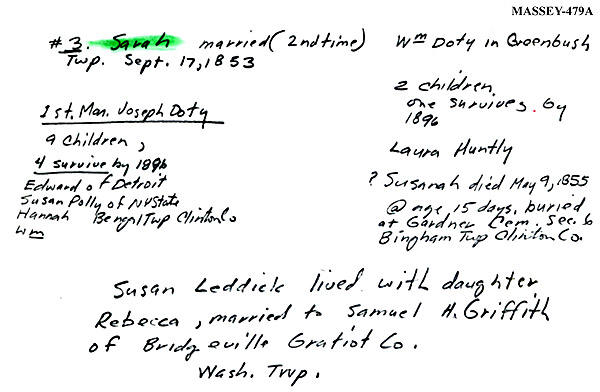 MASSEY-479A
#3. Sarah married (2nd time) Wm Doty in Greenbush
Twp. Sept. 17, 1853
2 children,
one survives by
1896
Laura Huntly
? Susanah died May 9, 1855
@ age 15 days, buried
at Gardner Cem. Sec. 6
Bingham Twp Clinton Co.
1st. Mar. Joseph Doty
9 children,
4 survive by 1896
Edward of Detroit
Susan Polly of NY State
Hannah Bengl Twp Clinton Co
Wm
Susan Leddick lived with daughter
Rebecca, married to Samuel H. Griffith
of Bridgeville Gratiot Co.
Wash. Twp.